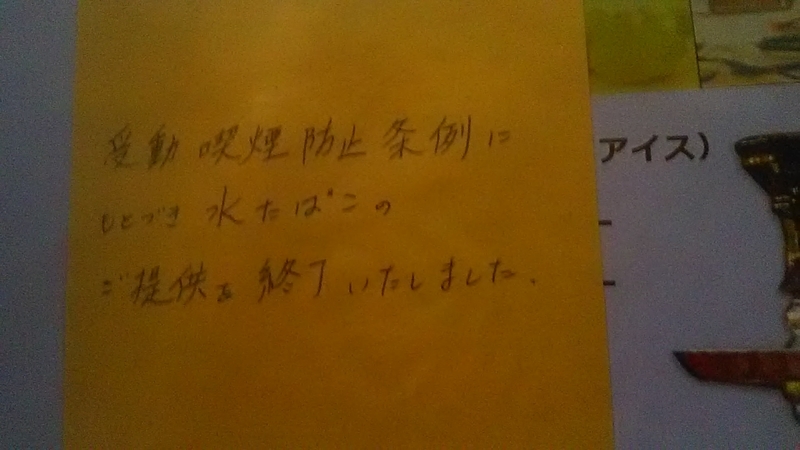 受動喫煙防止条例に
もとづき 水たばこの
ご提供を終了いたしました.
アイス)